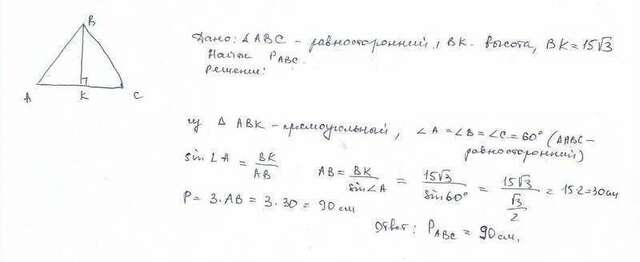 B
A K C
Дано: ∠ABC - равносторонний, BK - высота, BK = 15√3
Найти P_ABC.
решение:
из △ ABK - прямоугольный, ∠A = ∠B = ∠C = 60° (△ABC - равносторонний)
sin∠A = BK/AB AB = BK/sin∠A = 15√3/sin60° = 15√3/(√3/2) = 15·2 = 30см
P = 3·AB = 3·30 = 90см
Ответ: P_ABC = 90см.